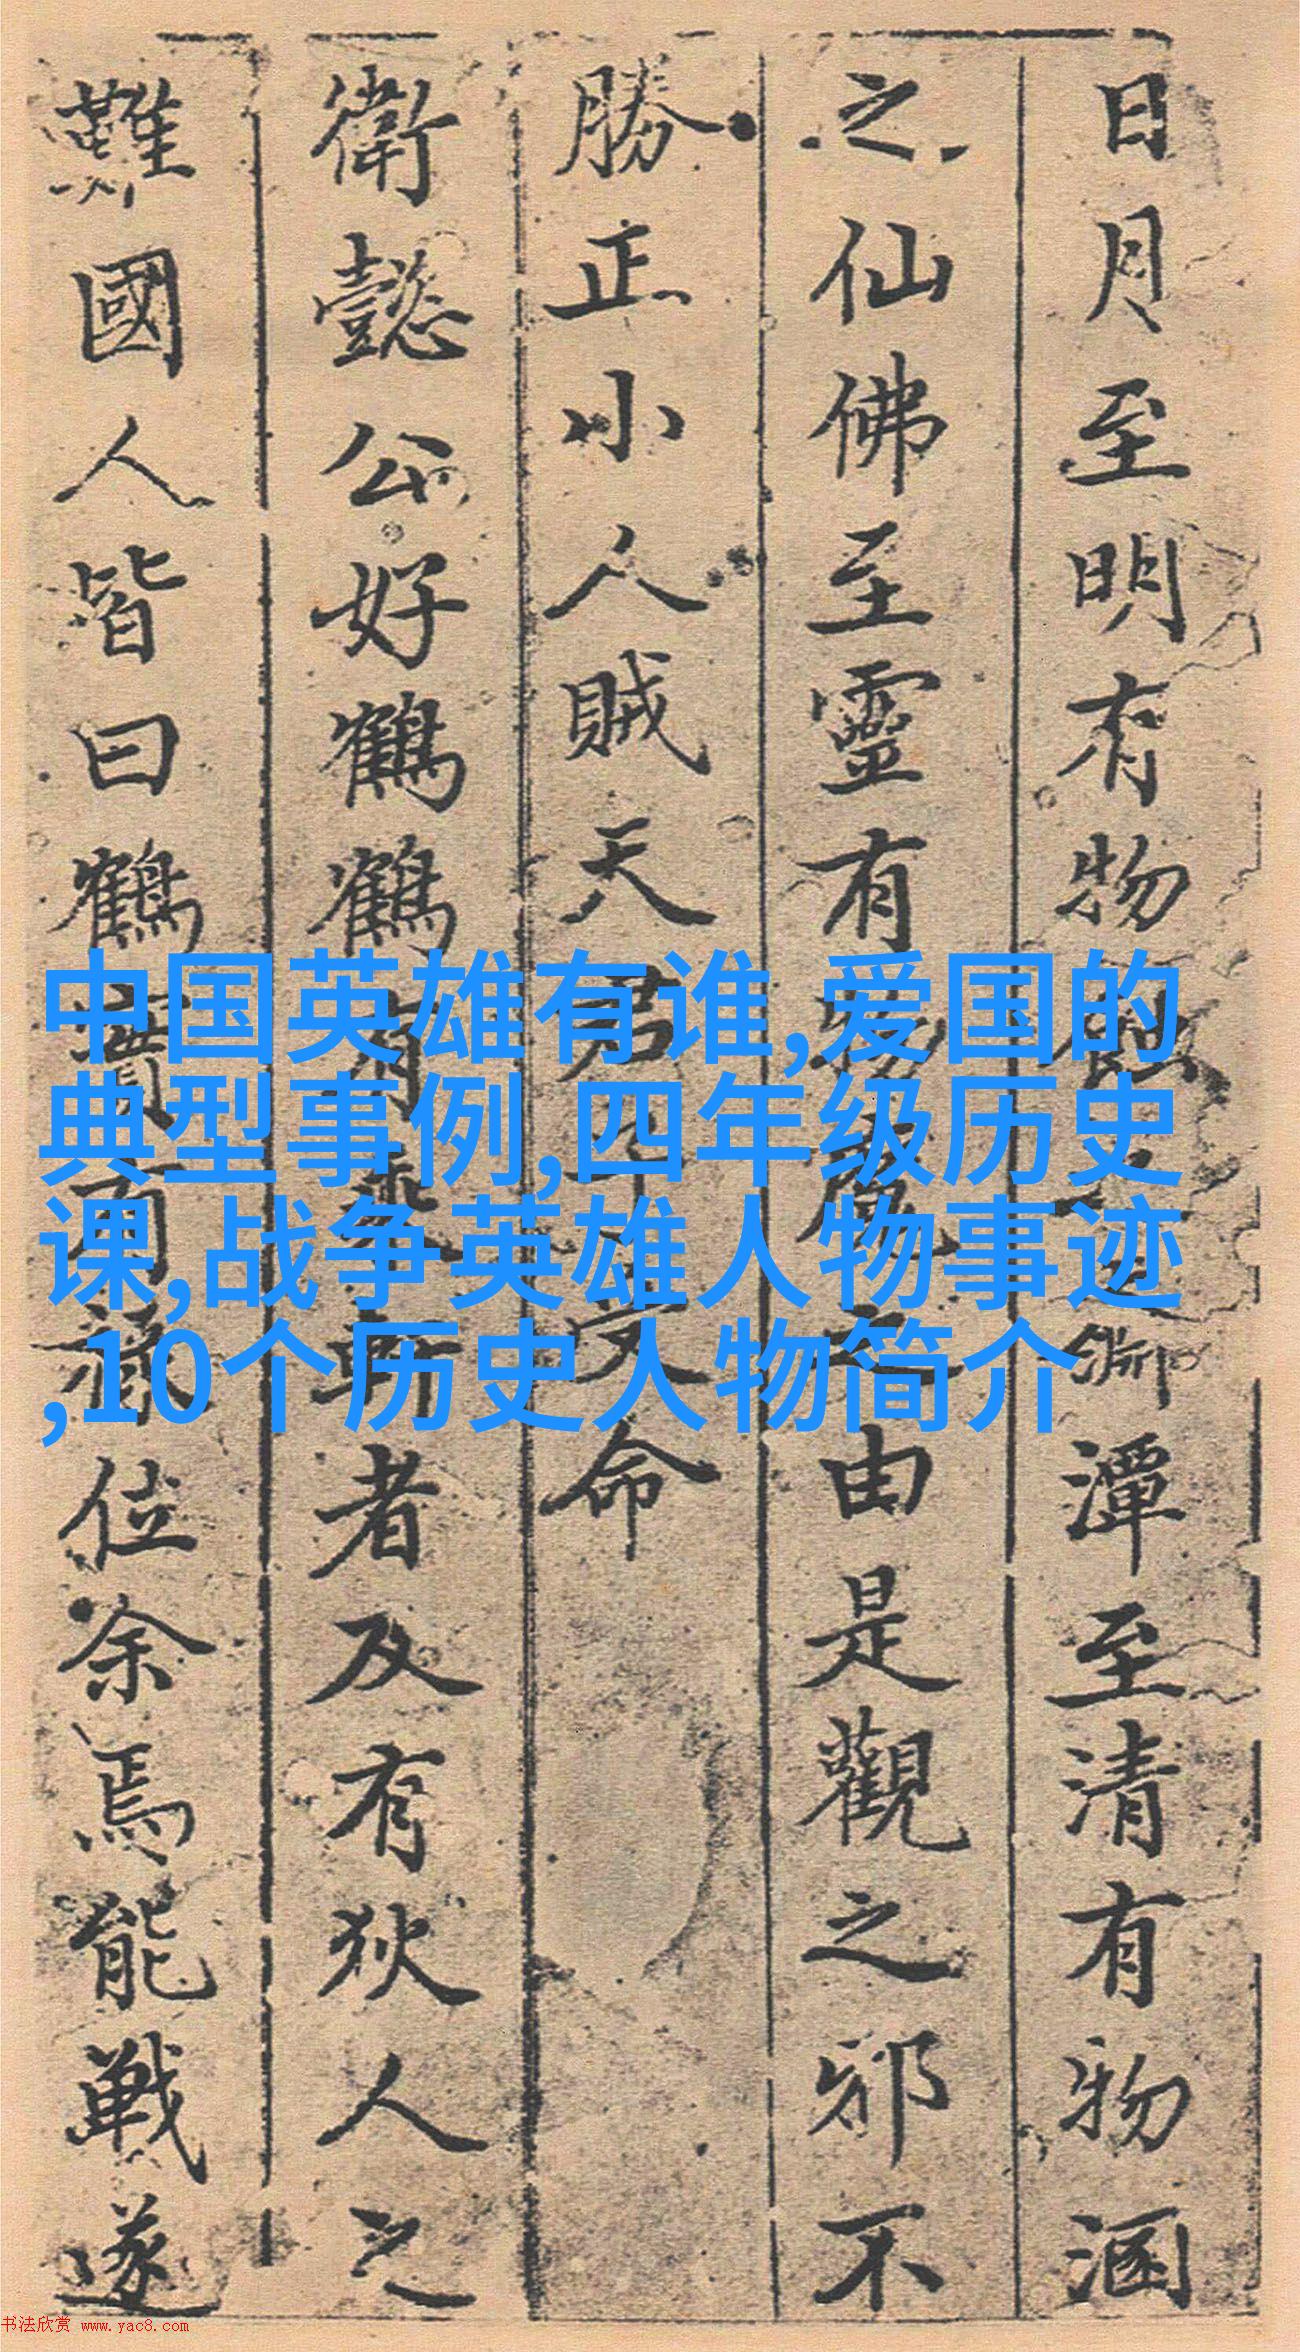 日月至明有物蝕之淵潭至清有物涵
之仙佛至靈有物魔之由是觀之邪不
勝正小人賊天命
衛懿公好鶴鶴有乘軒者及有狄人之
難國人皆曰鶴實有祿位余焉能戰遂
中国英雄有谁,爱国的
典型事例,四年级历史
课,战争英雄人物事迹
,10个历史人物简介
书法欣赏 www.yac8.com